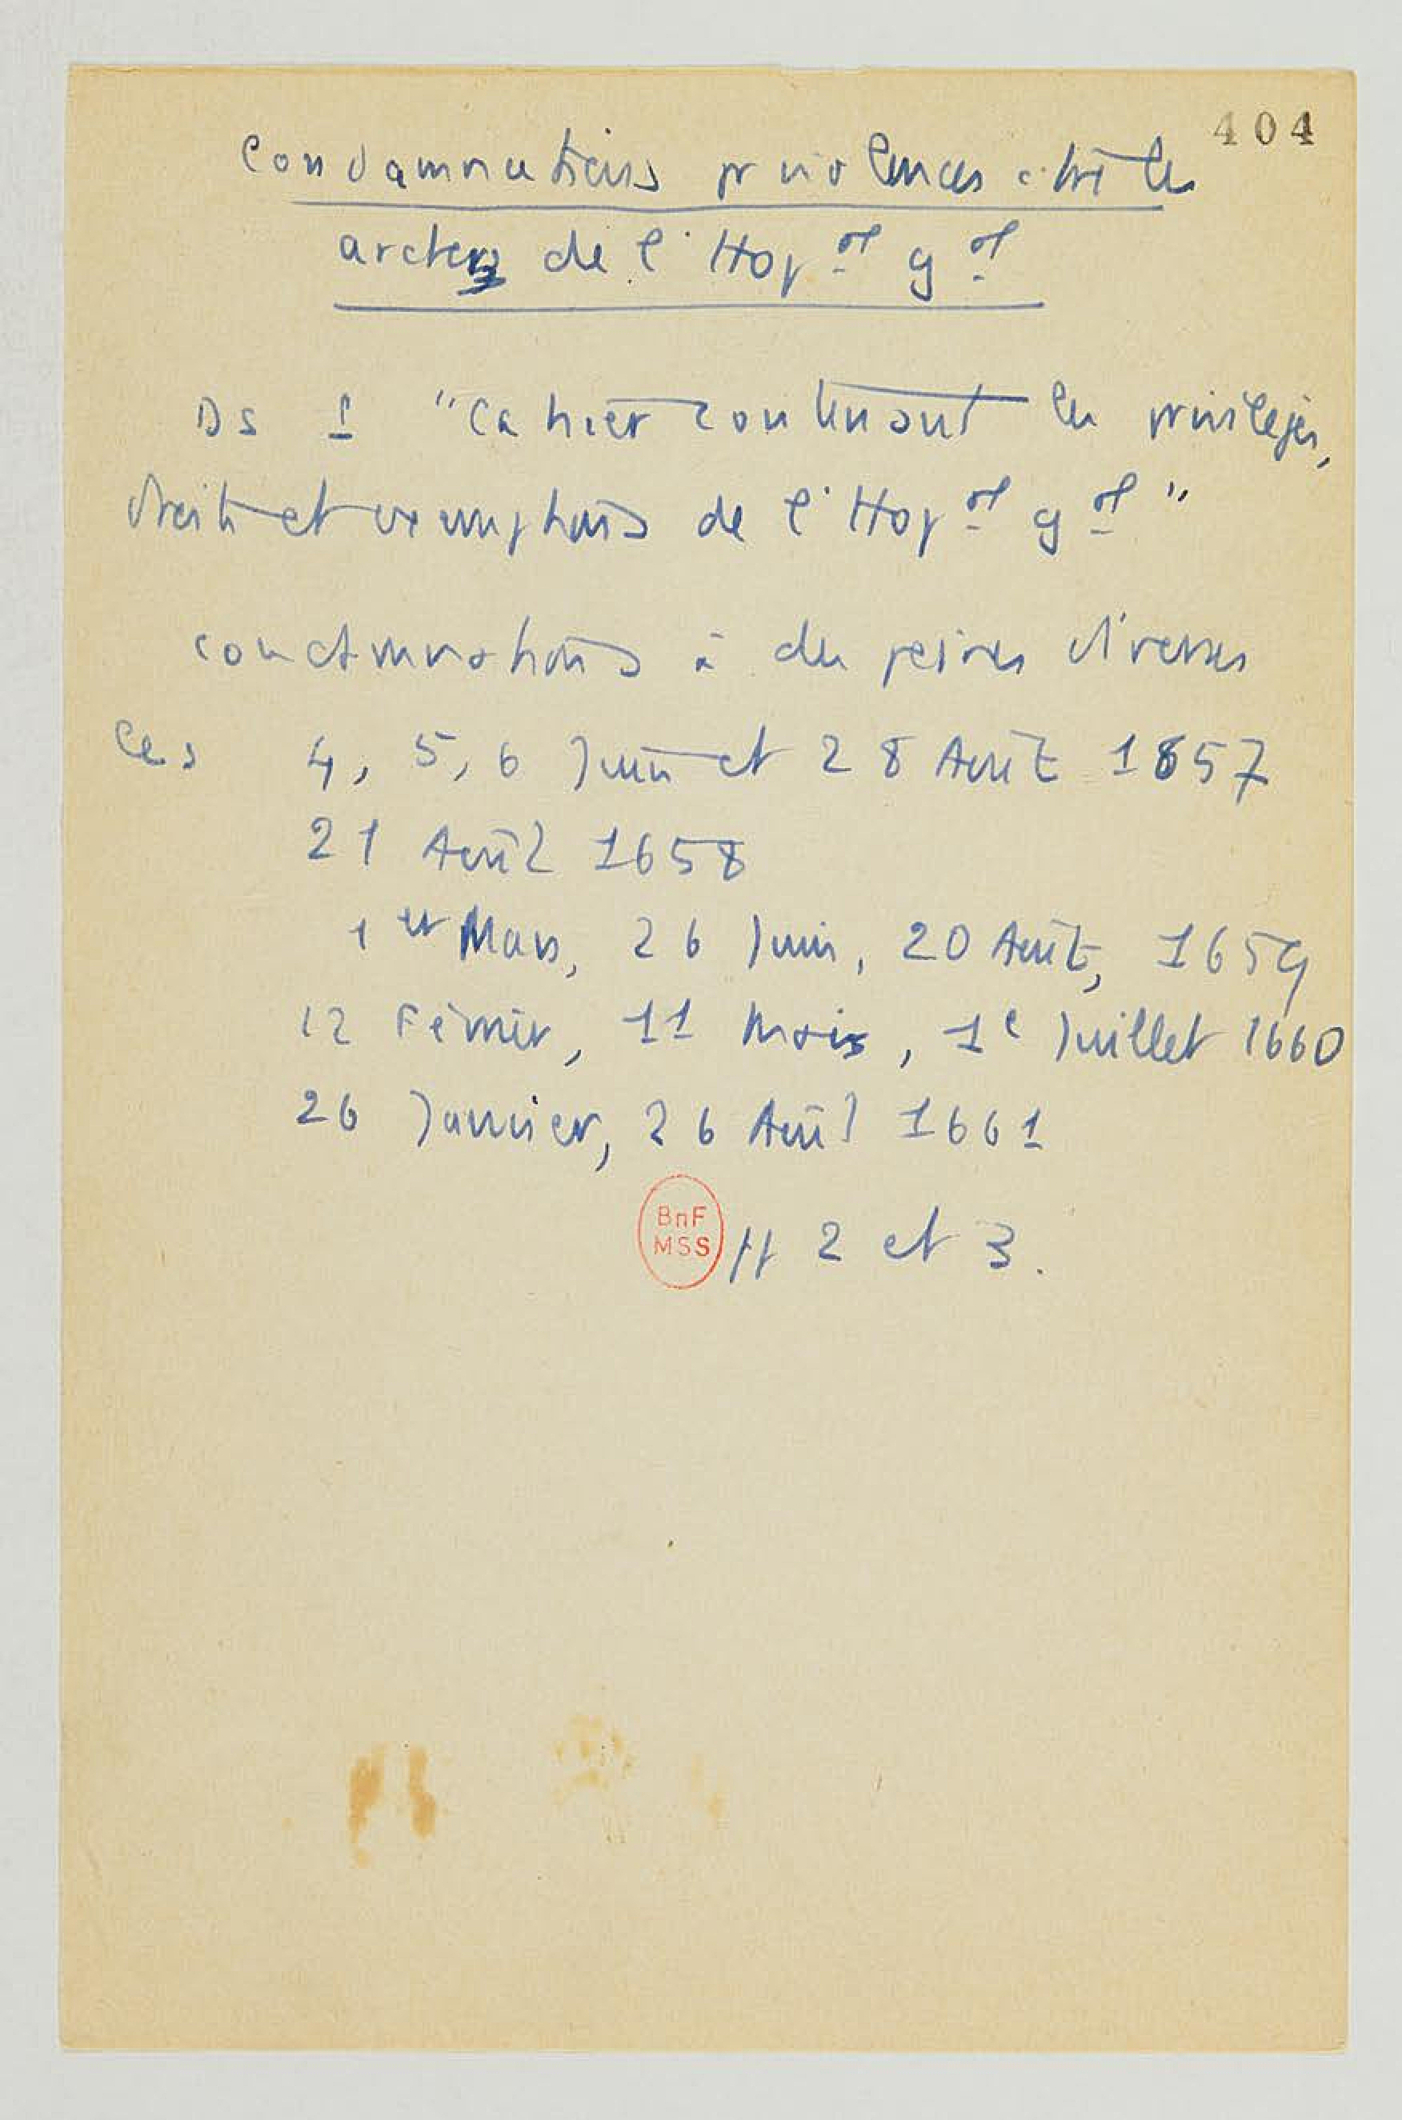 404
Condamnations pr violences ctre les
archers de l'Hopal gal
Ds 1 "Cahier contenant les privilèges,
droits et exemptions de l'Hopal gal"
condamnations à des peines diverses
les 4, 5, 6 Juin et 28 Août 1657
21 Août 1658
1er Mars, 26 Juin, 20 Août, 1659
12 Février, 11 Mars, 1e Juillet 1660
26 Janvier, 26 Août 1661
BnF
MSS
ff 2 et 3.